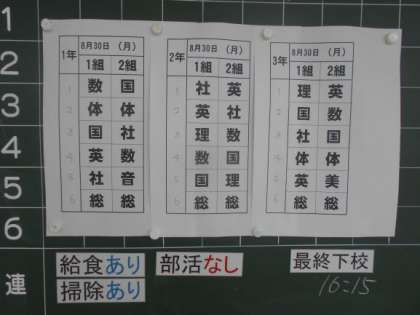 1
2
3
4
5
6
連
1年 8月30日 (月)
1組 2組
1 数 国
2 体 体
3 国 社
4 英 数
5 社 音
6 総 総
2年 8月30日 (月)
1組 2組
1 社 英
2 英 社
3 理 数
4 数 国
5 国 理
6 総 総
3年 8月30日 (月)
1組 2組
1 理 英
2 国 数
3 社 国
4 体 体
5 英 美
6 総 総
給食あり
掃除あり
部活なし
最終下校
16:15